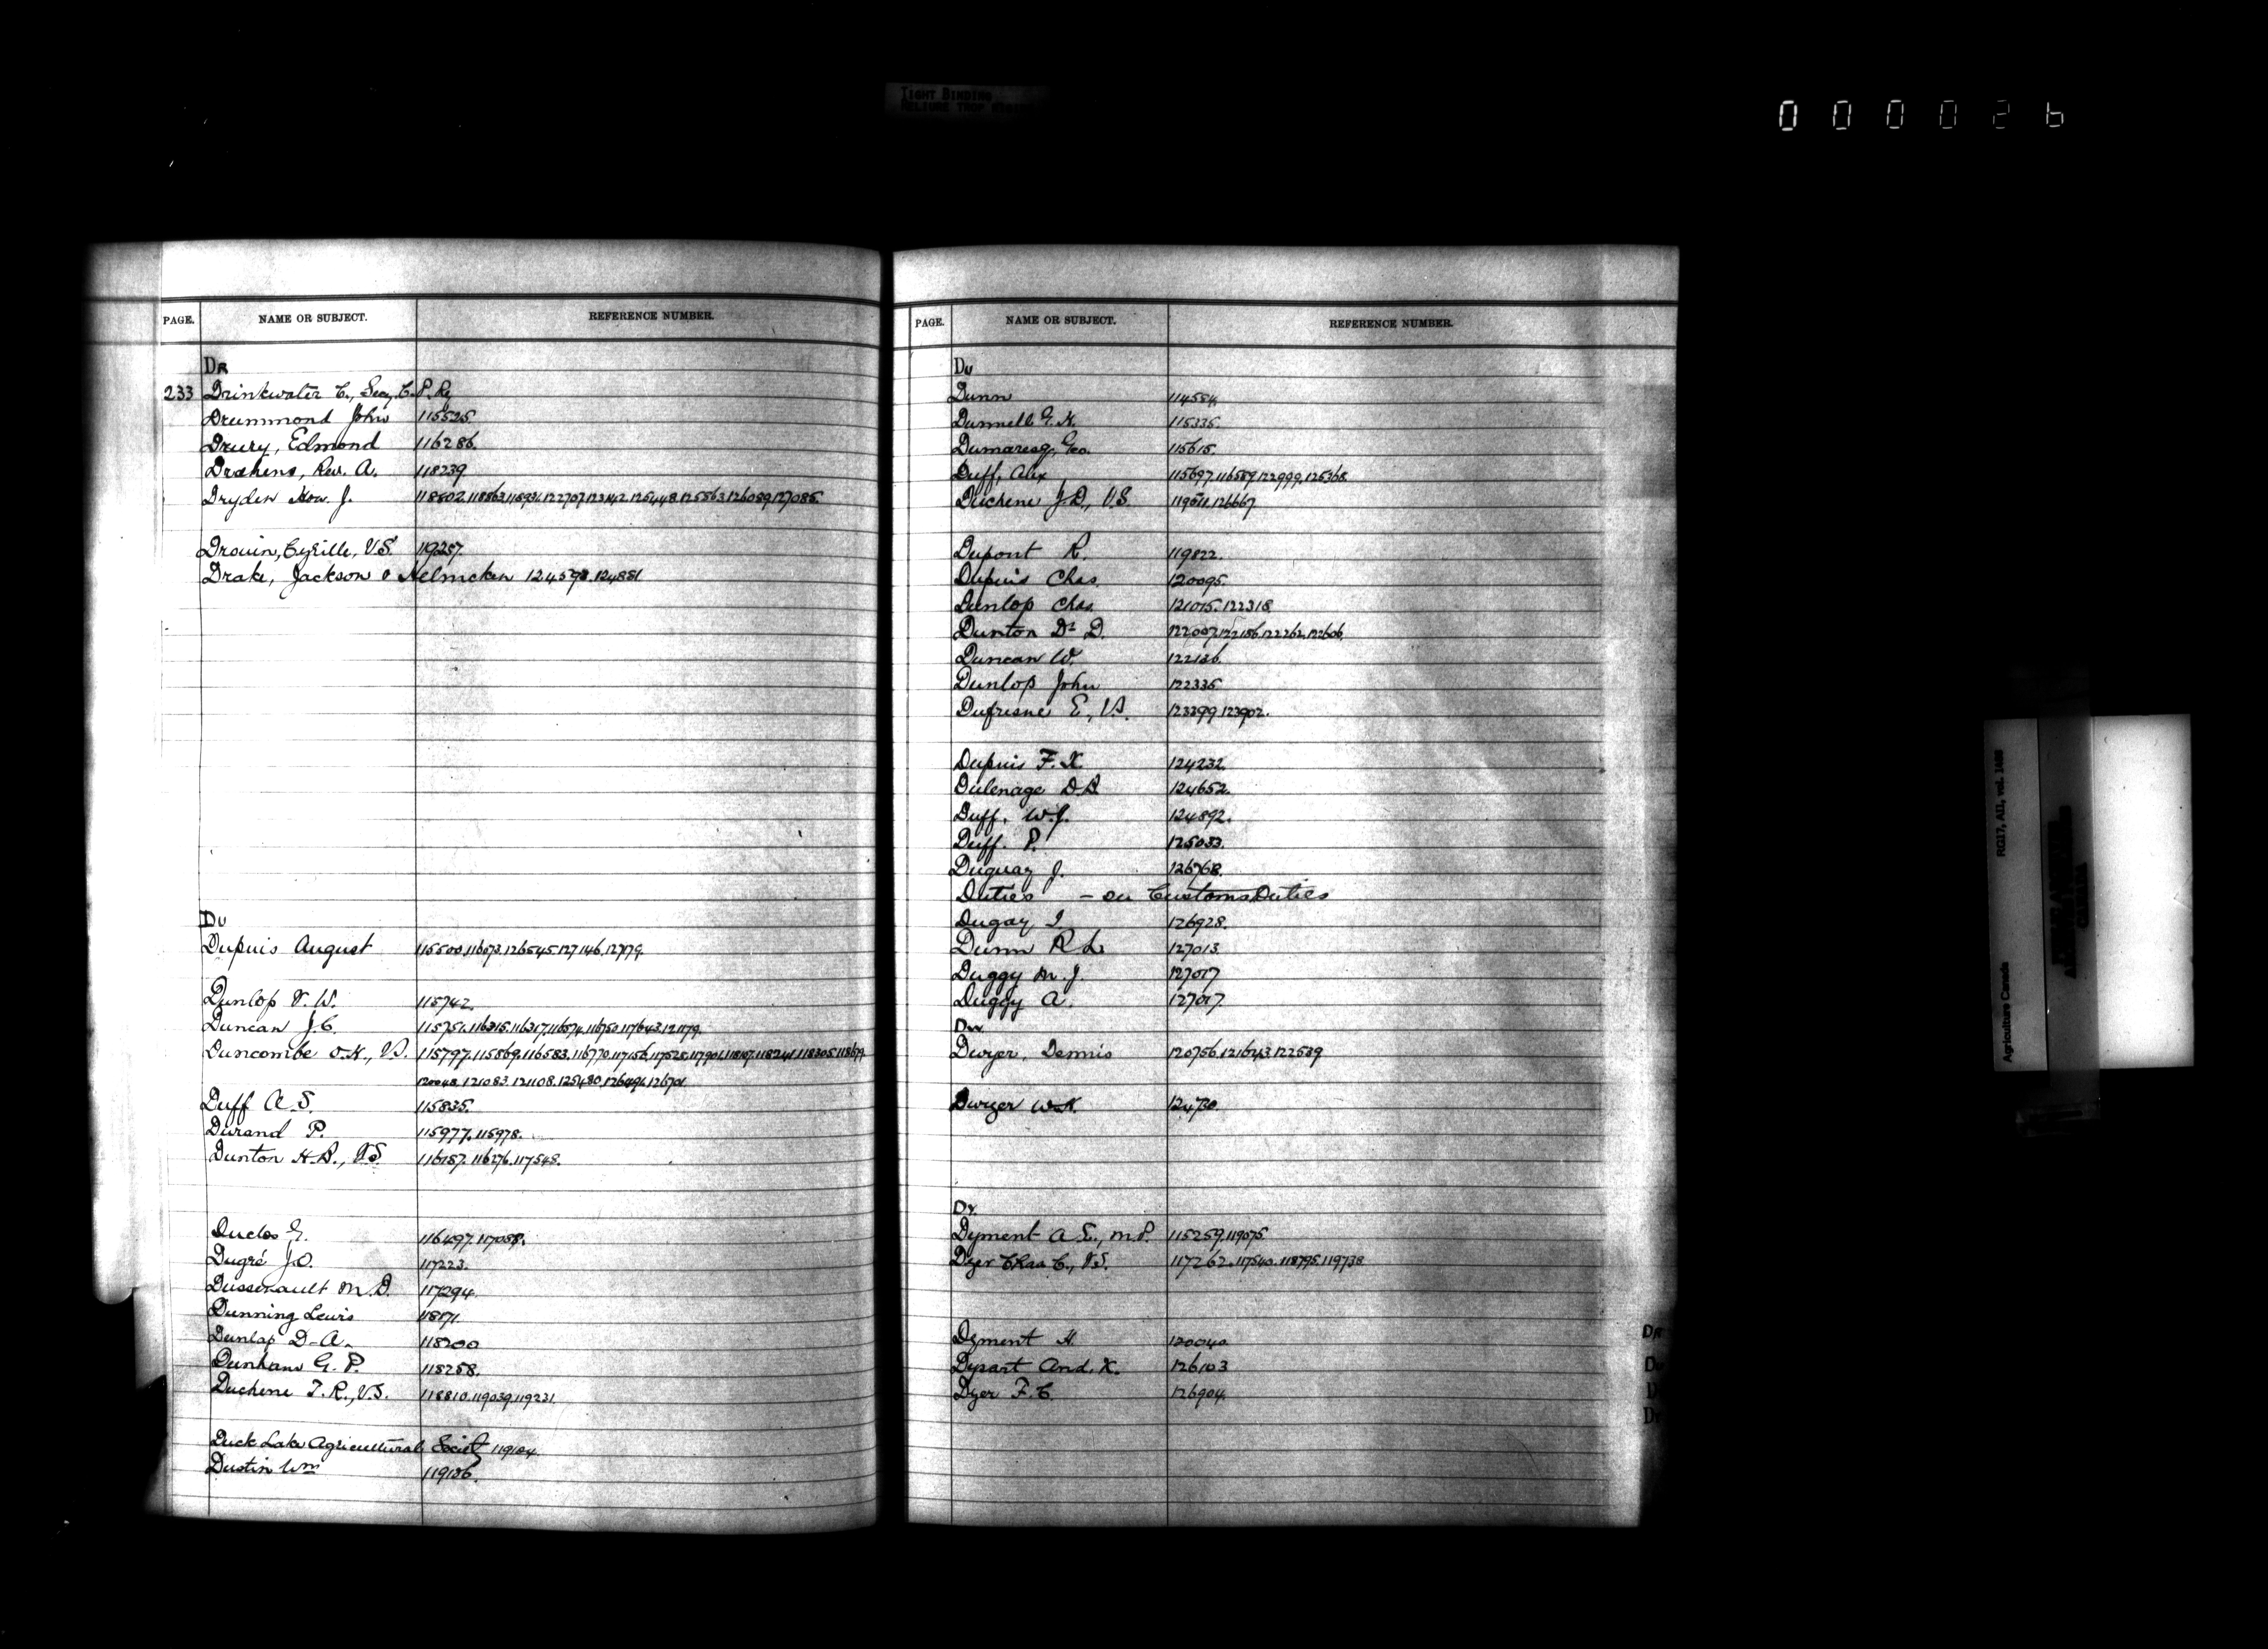 TIGHT BINDING
000026
PAGE. NAME OR SUBJECT. REFERENCE NUMBER.
DR
233 Drinkwater C., Secy. C.P. Ry
Drummond John 115525.
Drury, Edmond 116286.
Drahens, Rev. A. 118239
Dryden Hon. J. 118802.118863.118931.122707.123142.125448.125563.126089.127085.
Drouin, Cyrille, V.S. 119257.
Drake, Jackson & Helmcken 124598.124881
DU
Dupuis August 115500.116073.126545.127146.127179.
Dunlop V. W. 115742.
Duncan J.C. 115751.116315.116317.116574.116750.117643.121179.
Duncombe O.H., V.S. 115797.115869.116583.116770.117156.117528.117901.118107.118241.118305.118679
120048.121083.121108.125480.126491.126701
Duff A.S. 115835.
Durand P. 115977.115978.
Dunton H.B., V.S. 116187.116276.117548.
Duclos G. 116497.117058.
Dugré J.O. 117223.
Dussenault M.D. 117294.
Dunning Lewis 118171
Dunlap D.A. 118200
Dunham G.P. 118258.
Duchene T.R., V.S. 118810.119039.119231.
Duck Lake Agricultural Society 119104
Dustin Wm 119186.
PAGE. NAME OR SUBJECT. REFERENCE NUMBER.
DU
Dunn 114554.
Dunnell G.H. 115335.
Dumaresq, Geo. 115615.
Duff, Alex 115697.116589.122999.125368.
Duchene J.D., V.S. 119511.126667.
Dupont R. 119822.
Dupuis Chas. 120095.
Dunlop Chas. 121015.122318.
Dunton Dr D. 122007.122186.122262.122606.
Duncan W. 122126.
Dunlop John 122335
Dufresne E., V.S. 123399.123902.
Dupuis F.X. 124232.
Dulenage D.B. 124652.
Duff, W.J. 124892.
Duff. P. 125033.
Duguay J. 126768.
Duties - see Customs Duties
Dugay I 126928.
Dunn R L 127013.
Duggy M.J. 127017
Duggy A. 127017.
DW.
Dwyer, Dennis 120756.121643.122539
Dwyer W.H. 124730.
DY.
Dyment A.E., M.P. 115259.119075.
Dyer Chas C., V.S. 117262.117540.118795.119738
Dyment H. 120040
Dysart And. K. 126103
Dyer F.C. 126904.
DR
DU
RG17, AII, vol. 1488
Agriculture Canada